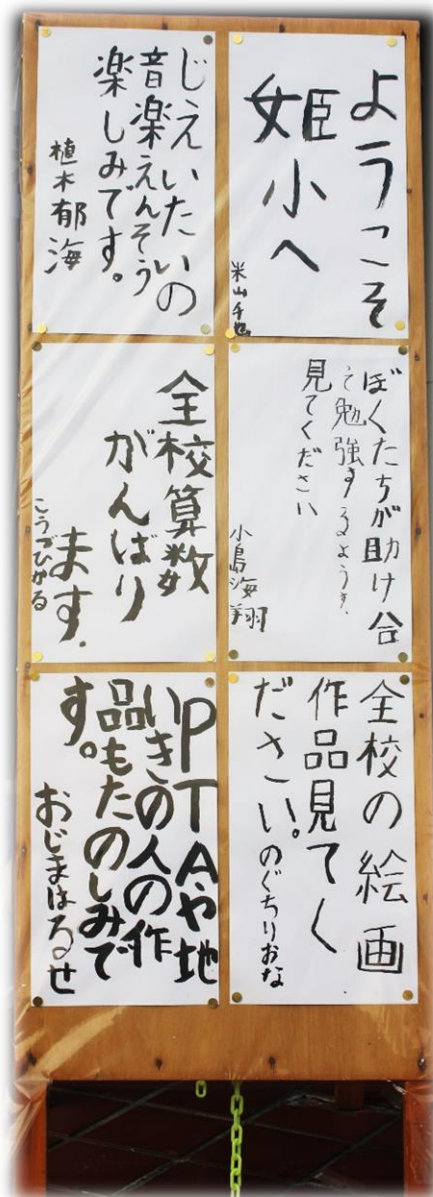 ようこそ
姫小へ
米山千也
じえいたいの
音楽えんそう
楽しみです。
植木郁海
ぼくたちが助け合
って勉強するようす、
見てください
小島海翔
全校算数
がんばり
ます.
こうづひかる
全校の絵画
作品見てく
ださい。
のぐちりおな
PTAや地
いきの人の作
品もたのしみで
す。
おじまはるせ